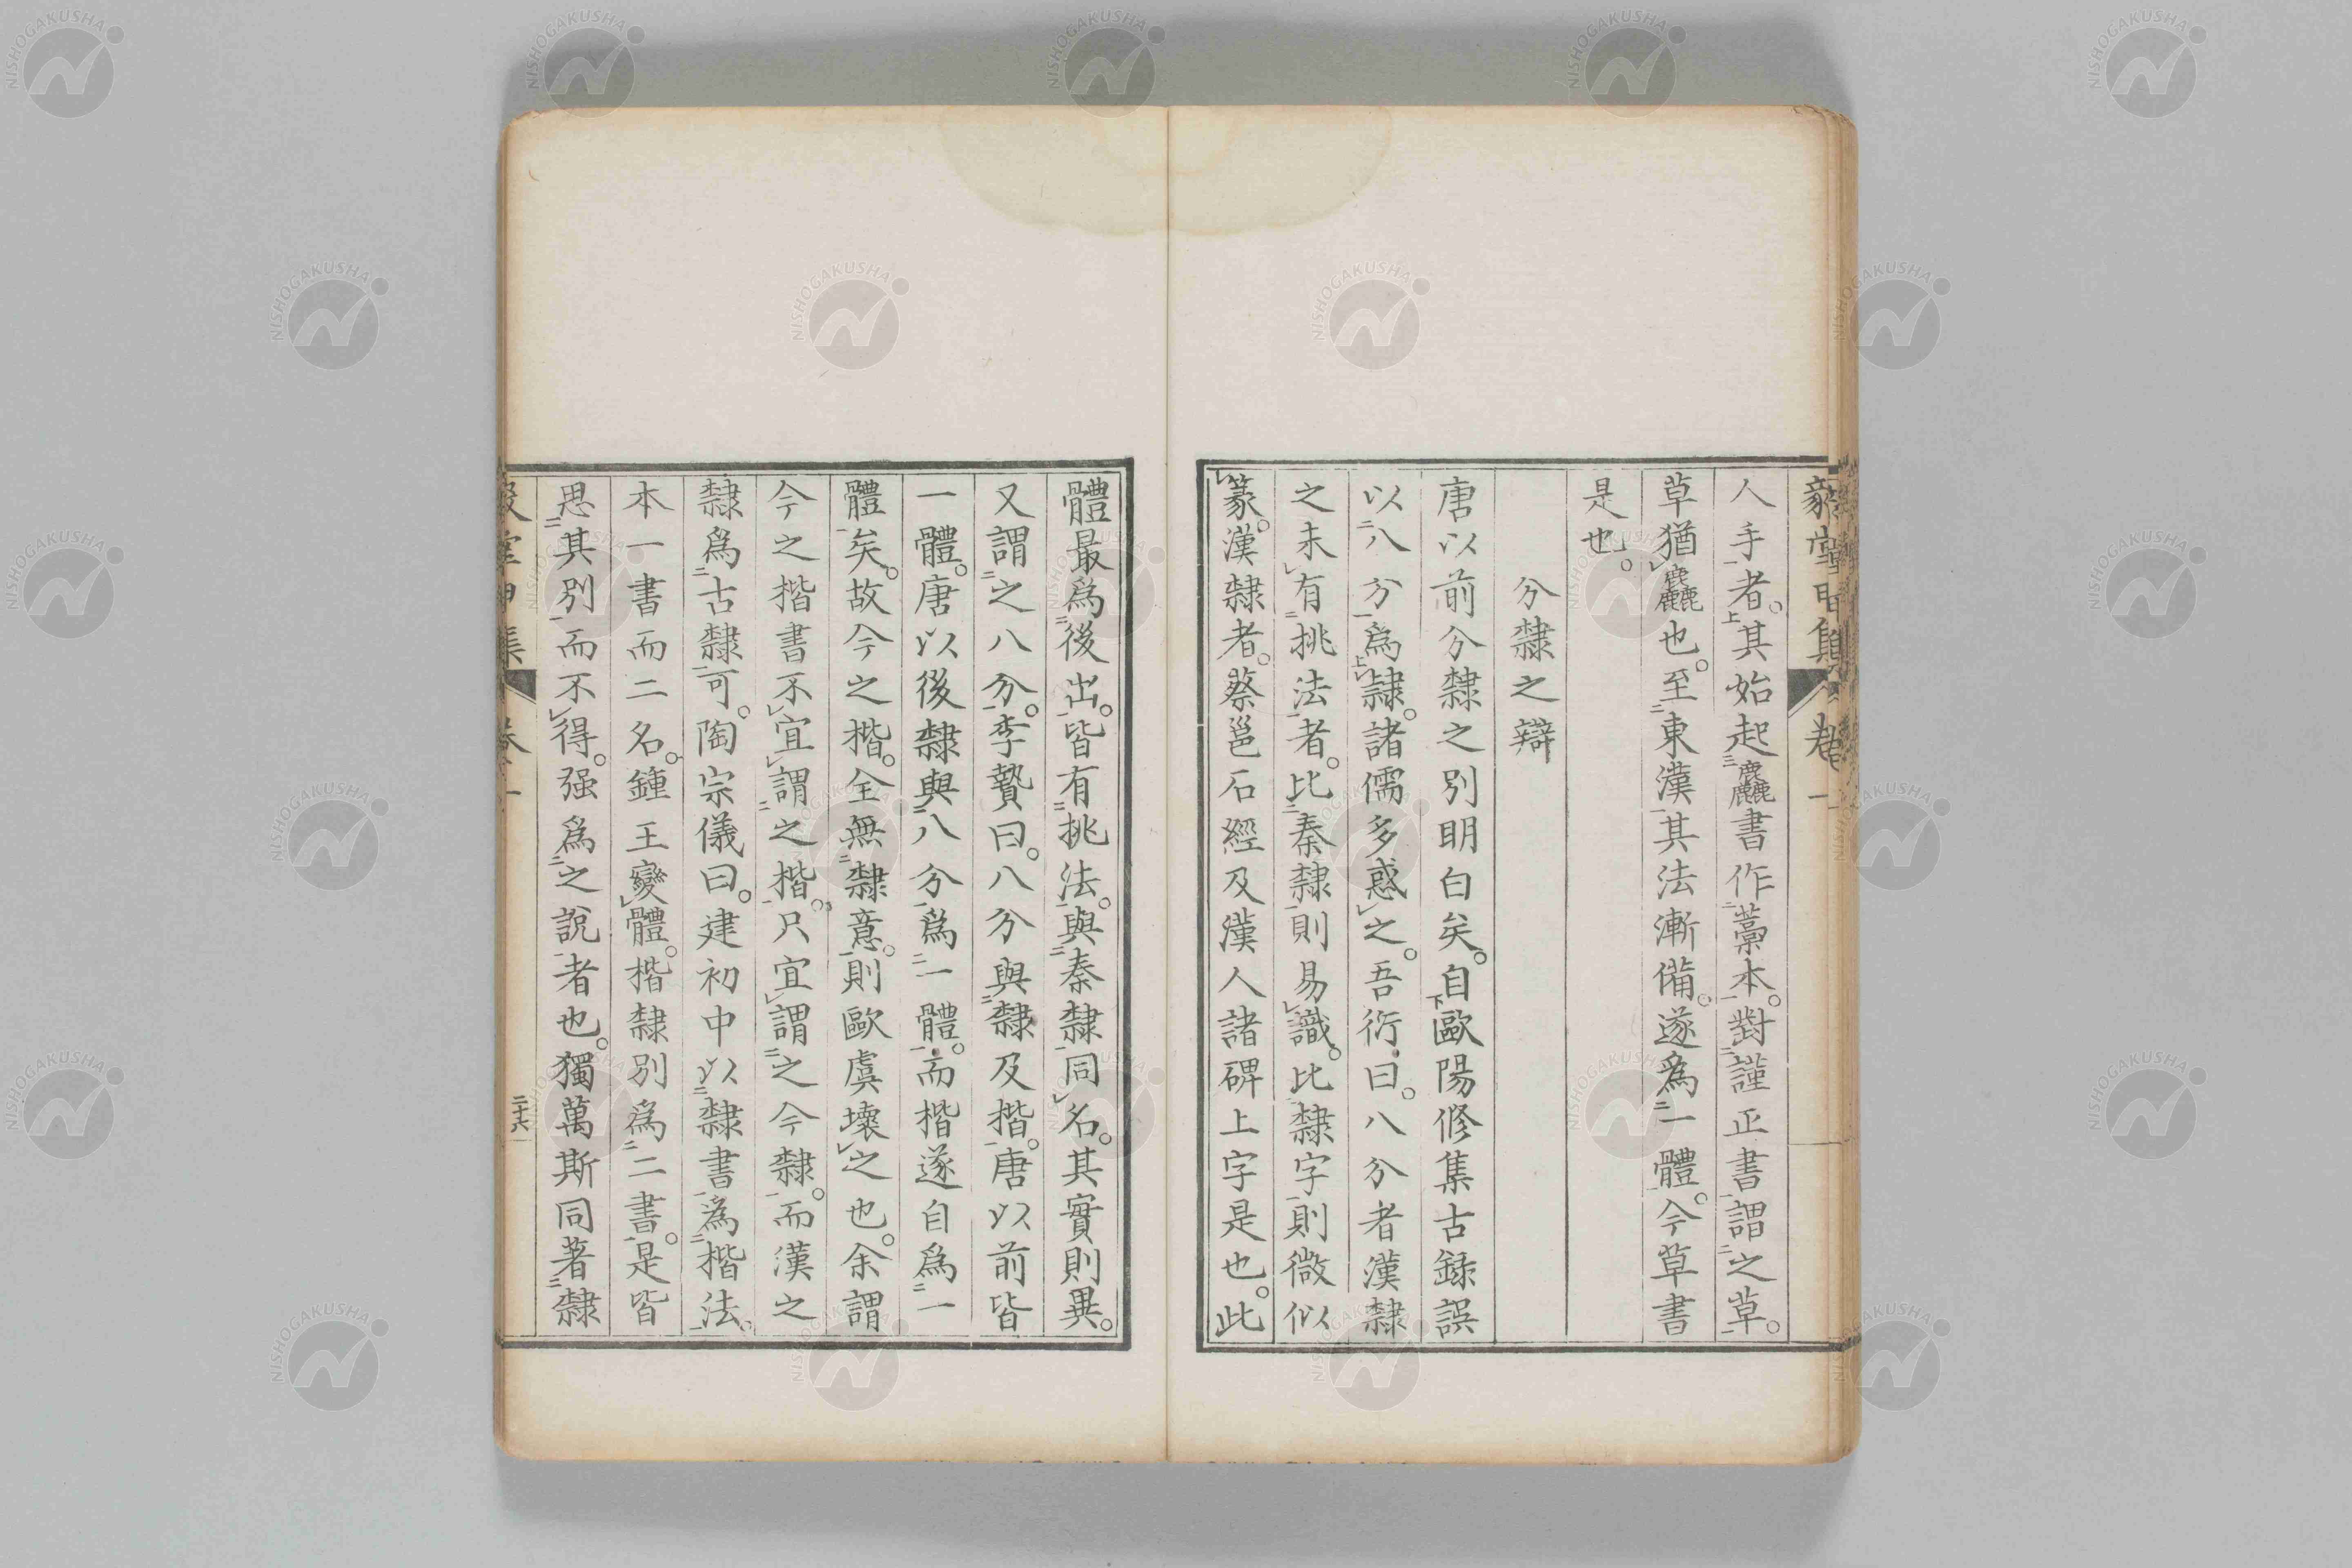 人手者。其始起麤書作藁本。對謹正書謂之草。
草猶麤也。至東漢其法漸備。遂爲一體。今草書
是也。
分隸之辯
唐以前分隸之別明白矣。自歐陽修集古録誤
以八分爲隷。諸儒多惑之。吾衍曰。八分者漢隸
之未有挑法者。比秦隸則易識。比隸字則微似
篆。漢隸者。蔡邕石經及漢人諸碑上字是也。此
體最爲後出。皆有挑法。與秦隸同名。其實則異。
又謂之八分。李贄曰。八分與隸及楷。唐以前皆
一體。唐以後隸與八分爲一體。而楷遂自爲一
體矣。故今之楷。全無隸意。則歐虞壞之也。余謂
今之楷書不宜謂之楷。只宜謂之今隸。而漢之
隸爲古隸可。陶宗儀曰。建初中以隸書爲楷法。
本一書而二名。鍾王變體。楷隸別爲二書。是皆
思其別而不得。强爲之說者也。獨萬斯同著隸
二十六
NISHOGAKUSHA